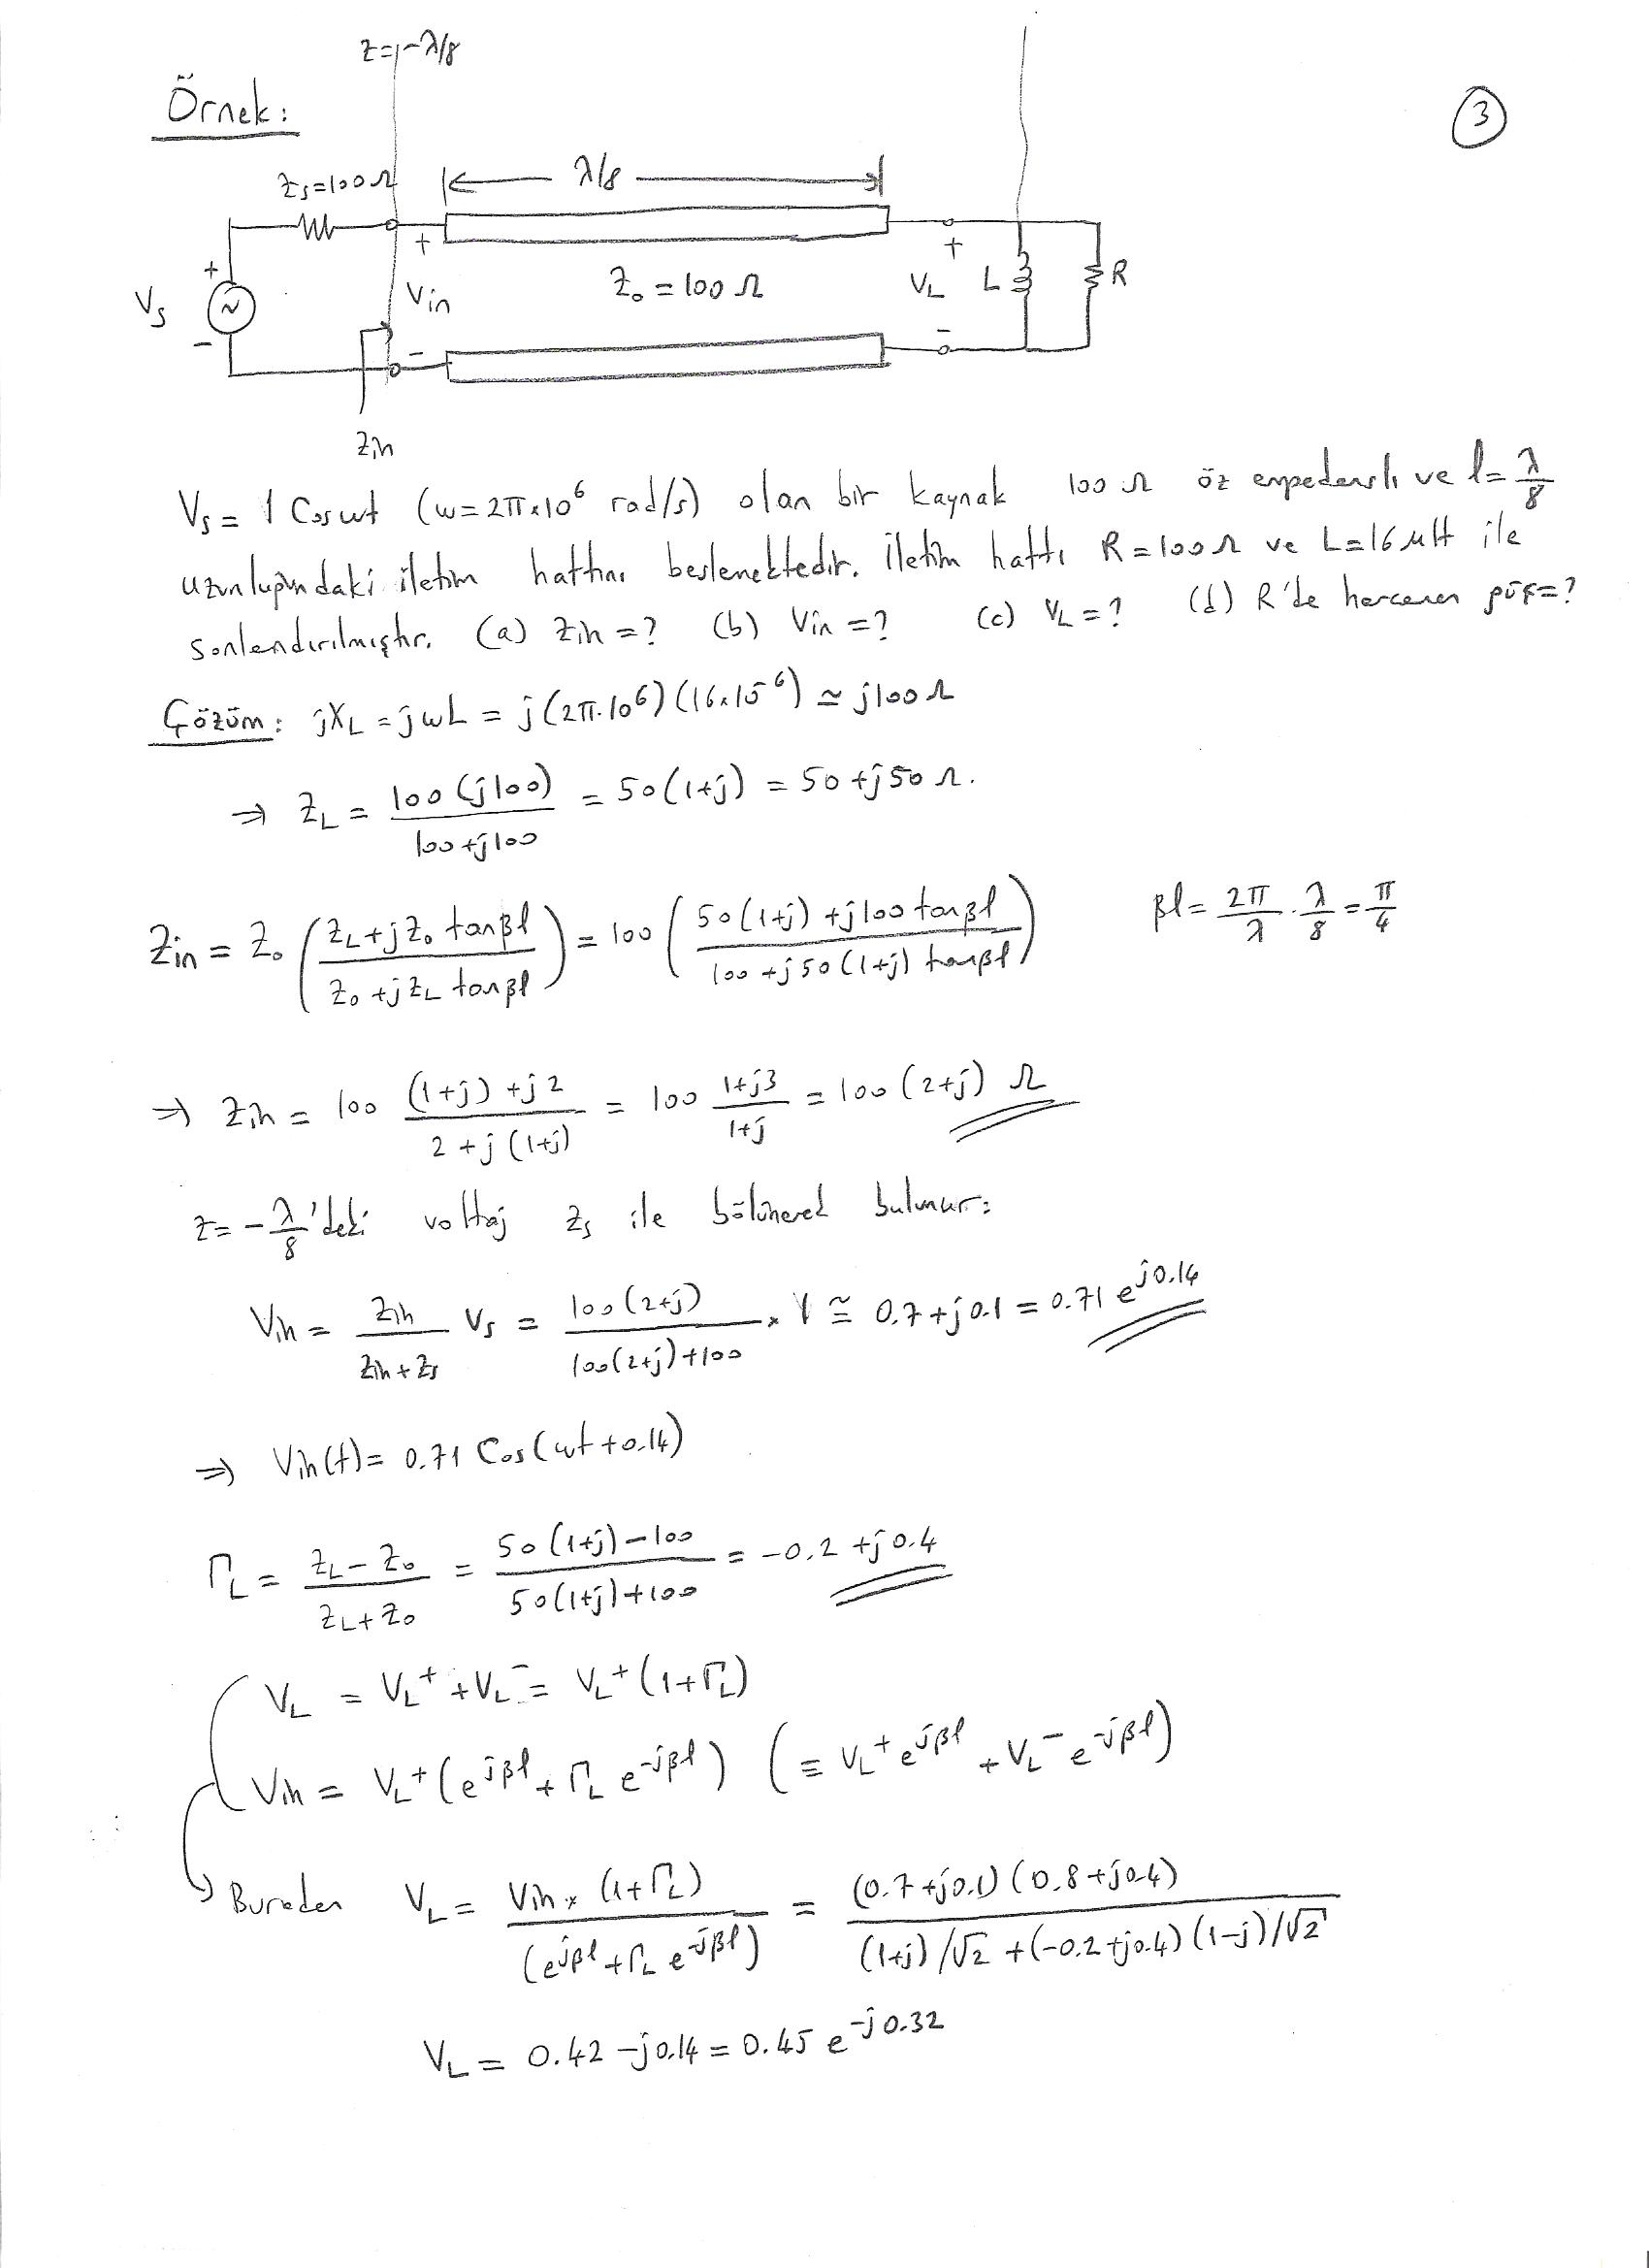 z=-λ/8
Örnek:
3
Zs=100Ω
λ/8
+
+
+
Vs
Vin
Z₀ = 100 Ω
VL
L
R
-
-
-
Zin
Vs = 1 Coswt (w=2π×10⁶ rad/s) olan bir kaynak 100 Ω öz empedanslı ve l=λ/8
uzunluğundaki iletim hattını beslemektedir. İletim hattı R=100Ω ve L=16μH ile
sonlandırılmıştır. (a) Zin=? (b) Vin=? (c) VL=? (d) R'de harcanan güç=?
Çözüm: jXL = jwL = j(2π·10⁶)(16×10⁻⁶) ≃ j100Ω
⇒ ZL = 100(j100)/(100+j100) = 50(1+j) = 50+j50Ω.
Zin = Z₀ ((ZL+jZ₀ tanβl)/(Z₀+jZL tanβl)) = 100 ((50(1+j)+j100tanβl)/(100+j50(1+j) tanβl)) βl = 2π/λ · λ/8 = π/4
⇒ Zin = 100 ((1+j)+j2)/(2+j(1+j)) = 100 (1+j3)/(1+j) = 100(2+j) Ω
z=-λ/8'deki voltaj Zs ile bölünerek bulunur:
Vin = Zin/(Zin+Zs) Vs = 100(2+j)/(100(2+j)+100) × 1 ≅ 0.7+j0.1 = 0.71 e^(j0.14)
⇒ Vin(t) = 0.71 Cos(wt+0.14)
ΓL = (ZL-Z₀)/(ZL+Z₀) = (50(1+j)-100)/(50(1+j)+100) = -0.2+j0.4
VL = VL⁺+VL⁻ = VL⁺(1+ΓL)
Vin = VL⁺(e^(jβl)+ΓL e^(-jβl)) (≡ VL⁺e^(jβl)+VL⁻e^(-jβl))
Buradan VL = Vin×(1+ΓL)/(e^(jβl)+ΓL e^(-jβl)) = (0.7+j0.1)(0.8+j0.4)/((1+j)/√2+(-0.2+j0.4)(1-j)/√2)
VL = 0.42-j0.14 = 0.45 e^(-j0.32)